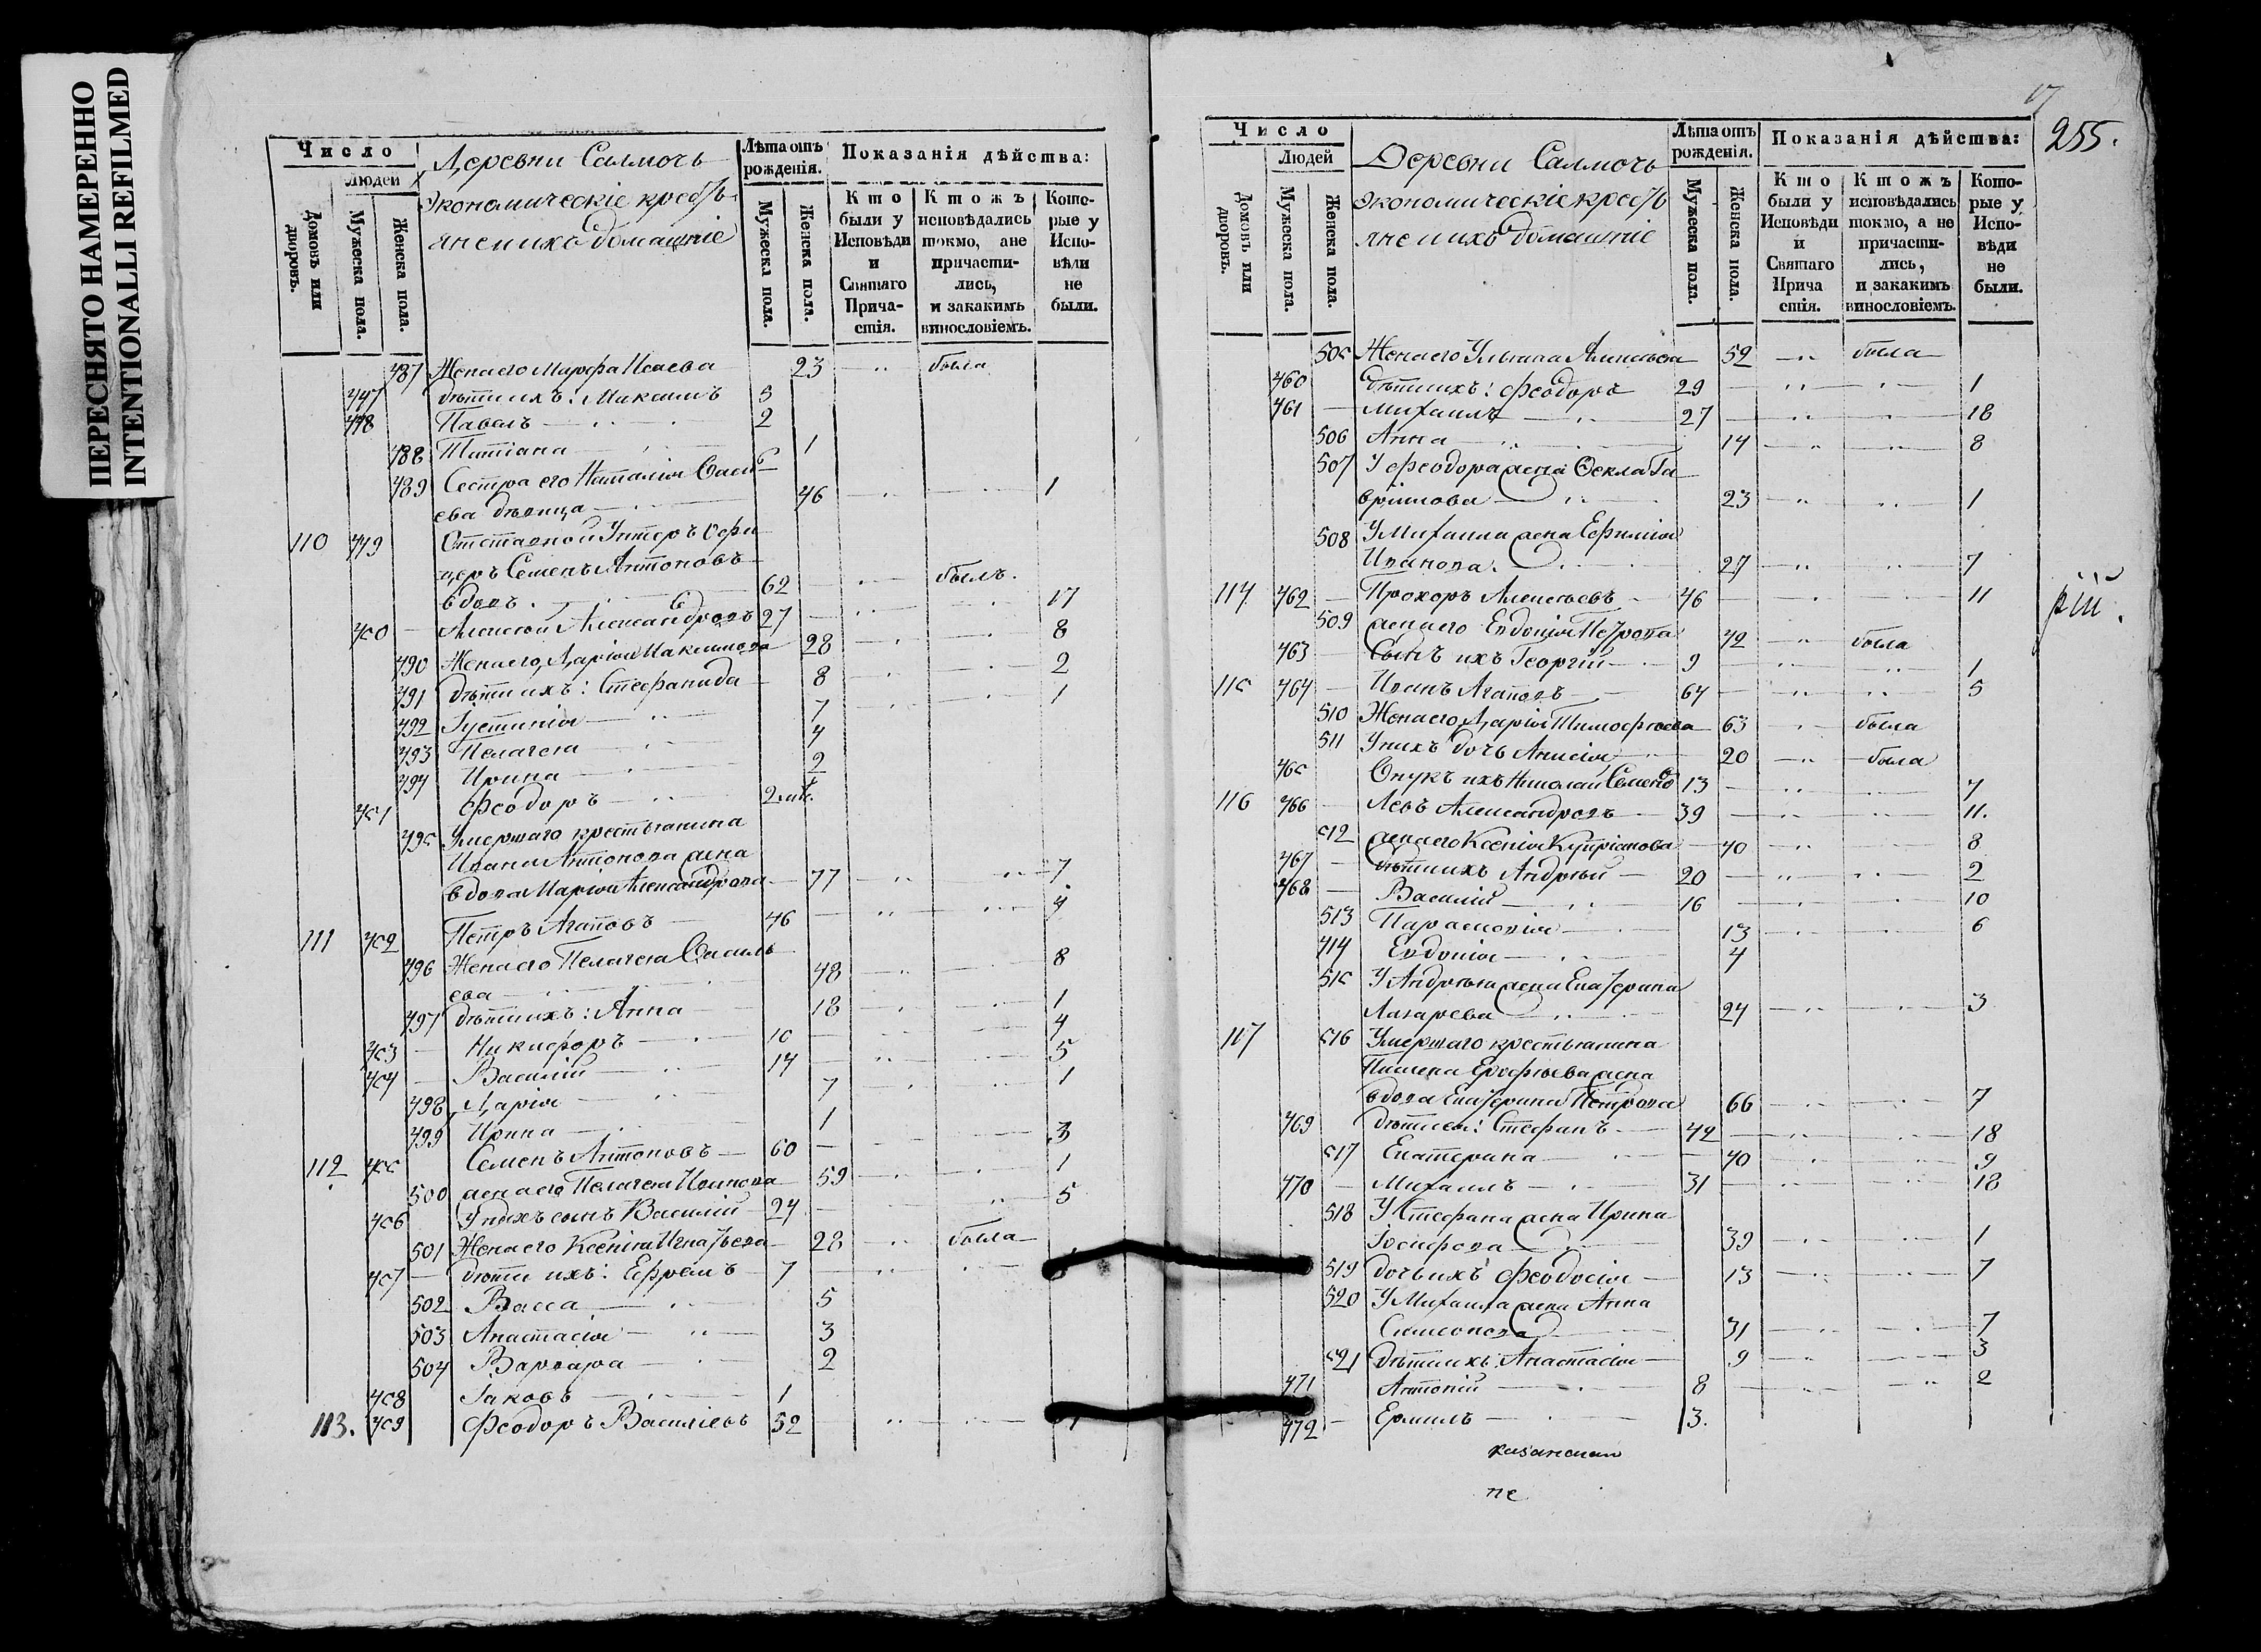 ПЕРЕСНЯТО НАМЕРЕННО
INTENTIONALLI REFILMED
Число
Людей
Домовъ или дворовъ.
Мужеска пола.
Женска пола.
Деревни Салмочь
экономическіе кресть
яне и ихъ домашніе
Лѣта отъ рожденія.
Мужеска пола.
Женска пола.
Показанія дѣйства:
Кто были у Исповѣди и Святаго Прича-стія.
Кто жъ исповѣдались токмо, а не причасти-лись, и за какимъ винословіемъ.
Кото-рые у Испо-вѣди не были.
487 Жена его Марфа Исаева 23 была
447 дѣти ихъ: Максимъ 5
448 Павелъ 2
488 Татіана 1
489 Сестра его Наталія Василь
ева дѣвица 46 1
110 449 Отставной Унтеръ Офи
церъ Семенъ Антоновъ
вдовъ. 62 былъ.
450 Алексей Александровъ 27 17
490 Жена его Дарія Максимова 28 8
491 дѣти ихъ: Стефанида 8 2
492 Густинія 7 1
493 Пелагея 4
494 Ирина 2
451 Феодоръ
495 Умершаго крестьянина
Ивана Антонова жена
вдова Марія Александрова 77 7
111 452 Петръ Агаповъ 46 4
496 Жена его Пелагея Василь
ева 48 8
497 дѣти ихъ: Анна 18 1
453 Никифоръ 10 4
454 Василій 14 5
498 Дарія 7 1
499 Ирина 1
112 455 Семенъ Антоновъ 60 3
500 жена его Пелагея Иванова 59 1
456 У нихъ сынъ Василій 24 5
501 Жена его Ксенія Игнатьева 28 была
457 дѣти ихъ: Ефремъ 7
502 Васса 5
503 Анастасія 3
504 Варвара 2
458 Іаковъ 1
113. 459 Феодоръ Василіевъ 52
17
255.
Число
Людей
Домовъ или дворовъ.
Мужеска пола.
Женска пола.
Деревни Салмочь
экономическіе кресть
яне и ихъ домашніе
Лѣта отъ рожденія.
Мужеска пола.
Женска пола.
Показанія дѣйства:
Кто были у Исповѣди и Святаго Прича стія.
Кто жъ исповѣдались токмо, а не причасти-лись, и за какимъ винословіемъ.
Кото-рые у Испо-вѣди не были.
505 Жена его Ульяна 52 была
460 дѣти ихъ: Феодоръ 29 1
461 Михаилъ 27 18
506 Анна 14 8
507 У Феодора жена Фекла Га
вріилова 23 1
508 У Михаила жена Ефимія
Иванова. 27 7
114 462 Прохоръ Алексеевъ 46 11
509 жена его Евдокія Петрова 42 была
463 Сынъ ихъ Георгій 9 1
115 464 Иванъ Агаповъ 64 5
510 Жена его Дарія Тимофеева 63 была
511 У нихъ дочь Анисія 20 была
465 Внукъ ихъ Николай Семено 13 7
116 466 Левъ Александровъ 39 11.
512 жена его Ксенія Купріанова 40 8
467 дѣти ихъ Андрей 20 2
468 Василій 16 10
513 Параскевія 13 6
414 Евдокія 4
515 У Андрея жена Екатерина
Лазарева 24 3
117 516 Умершаго крестьянина
Ерофеева жена
вдова Екатерина Петрова 66 7
469 дѣти ея: Стефанъ 42 18
517 Екатерина 40 9
470 Михаилъ 31 18
518 У Стефана жена Ирина
Іосифова 39 1
519 дочь ихъ Феодосія 13 7
520 У Михаила жена Анна
Симеонова 31 7
521 дѣти ихъ: Анастасія 9 3
471 Антоній 8 2
472 Ермилъ 3.